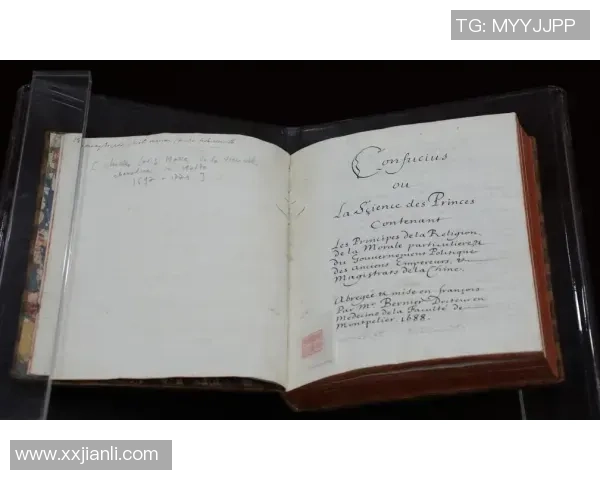 TG: MYYJJPP
Confucius
ou
La Science des Princes
Contenant
Les Principes de la Religion
de la Morale particuliere
du Gouvernement Politique
des Anciens Empereurs, &
Magistrats de la Chine.
Abregée & mise en françois
Par Mr Bernier Docteur en
Medecine de la Faculté de
Montpelier 1688.
www.xxjianli.com